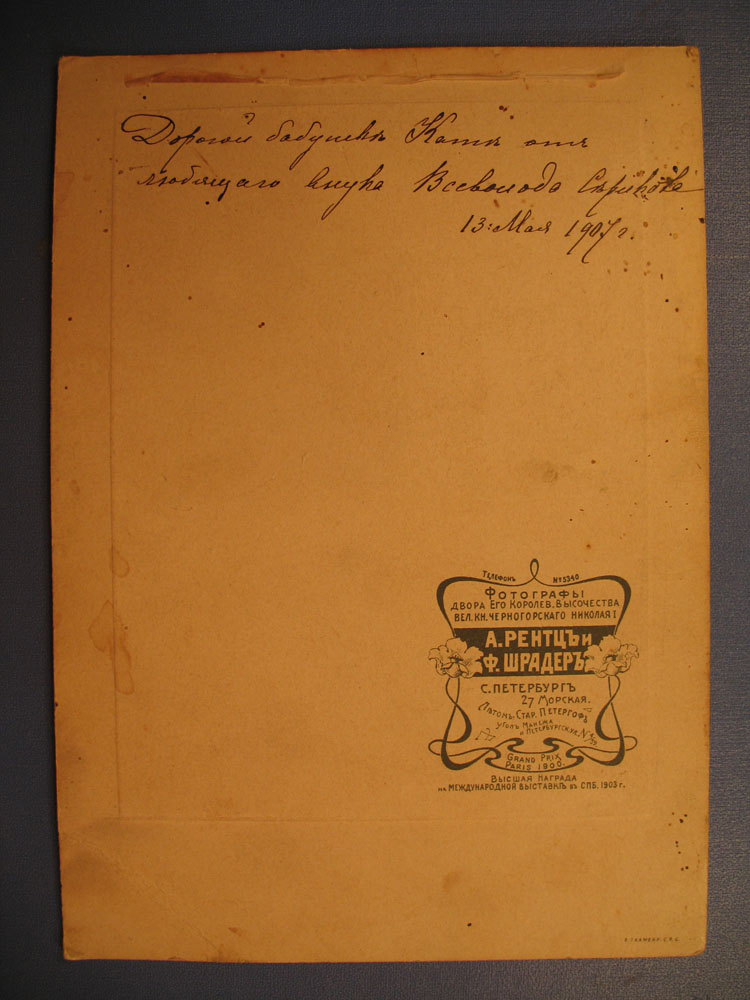 Дорогой бабушкѣ Катѣ отъ
любящаго внука Всеволода
13: Мая 1907 г.
Телефонъ № 3340
Фотографы
Двора Его Королев. Высочества
Вел. Кн. Черногорскаго Николая I
А. Рентцъ и
Ф. Шрадеръ
С. Петербургъ
27 Морская.
Лѣтомъ, Стар. Петергофъ
уголъ
и Петербургск. ул.
Grand Prix
Paris 1900
Высшая награда
на Международной выставкѣ въ СПБ. 1903 г.